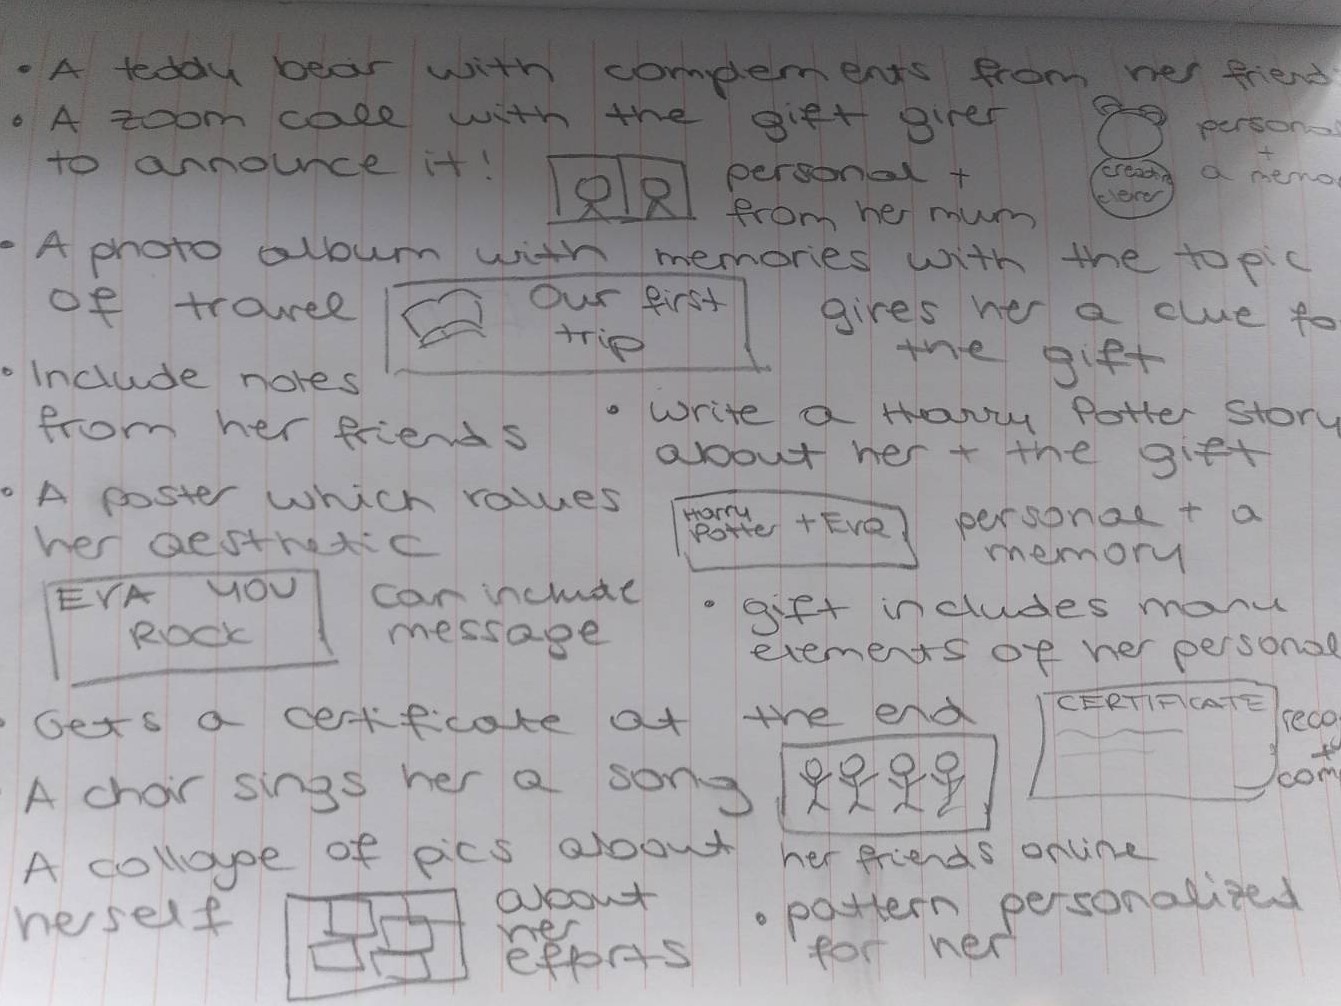 • A teddy bear with complements from her friend
• A zoom call with the gift giver
to announce it!
personal +
from her mum
creative
clever
persona
+
a memo
• A photo album with memories with the topic
of travel
Our first
trip
gives her a clue to
the gift
• Include notes
from her friends
• Write a Harry Potter Story
about her + the gift
Harry
Potter + Eva
personal + a
memory
• A poster which values
her aesthetic
EVA YOU
ROCK
can include
message
• gift includes many
elements of her personal
Gets a certificate at the end
CERTIFICATE
reco
+
com
A choir sings her a song
her friends online
A collage of pics about
herself
about
her
efforts
• pattern personalized
for her